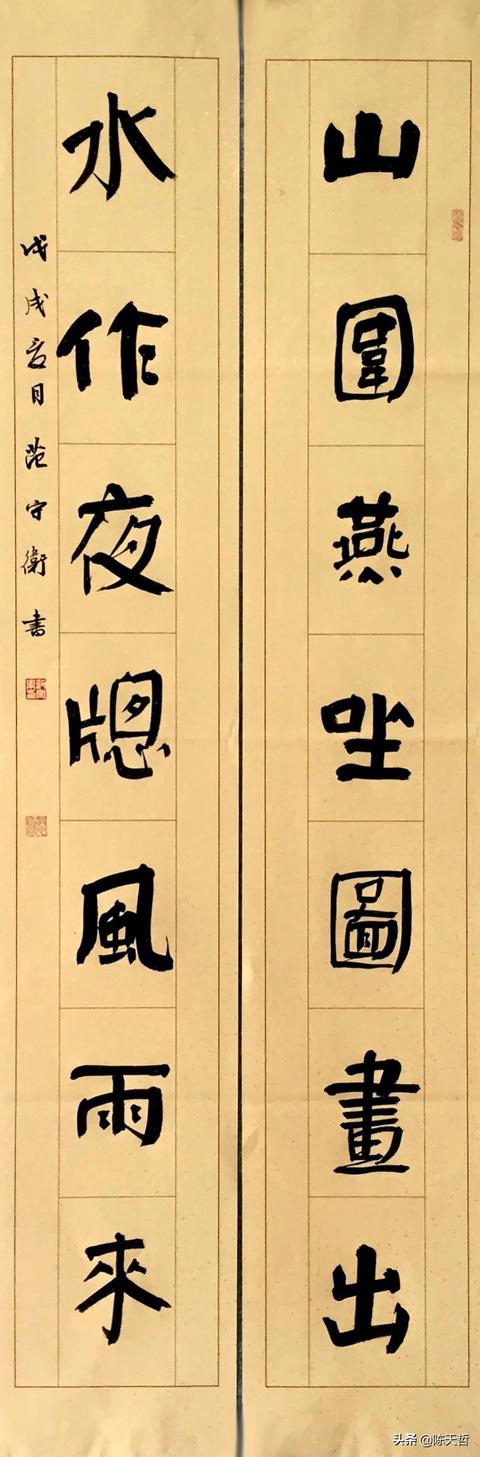 山圍燕坐圖畫出
水作夜牕風雨來
戊戌夏日范守衛書
头条 @陈天哲